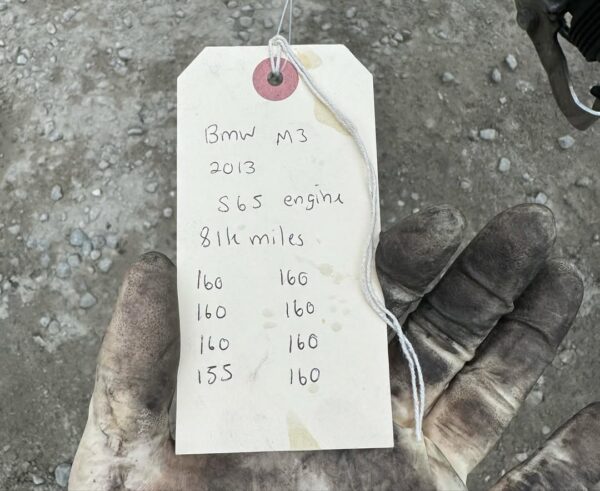 BMW M3
2013
S65 engine
81k miles
160 160
160 160
160 160
155 160